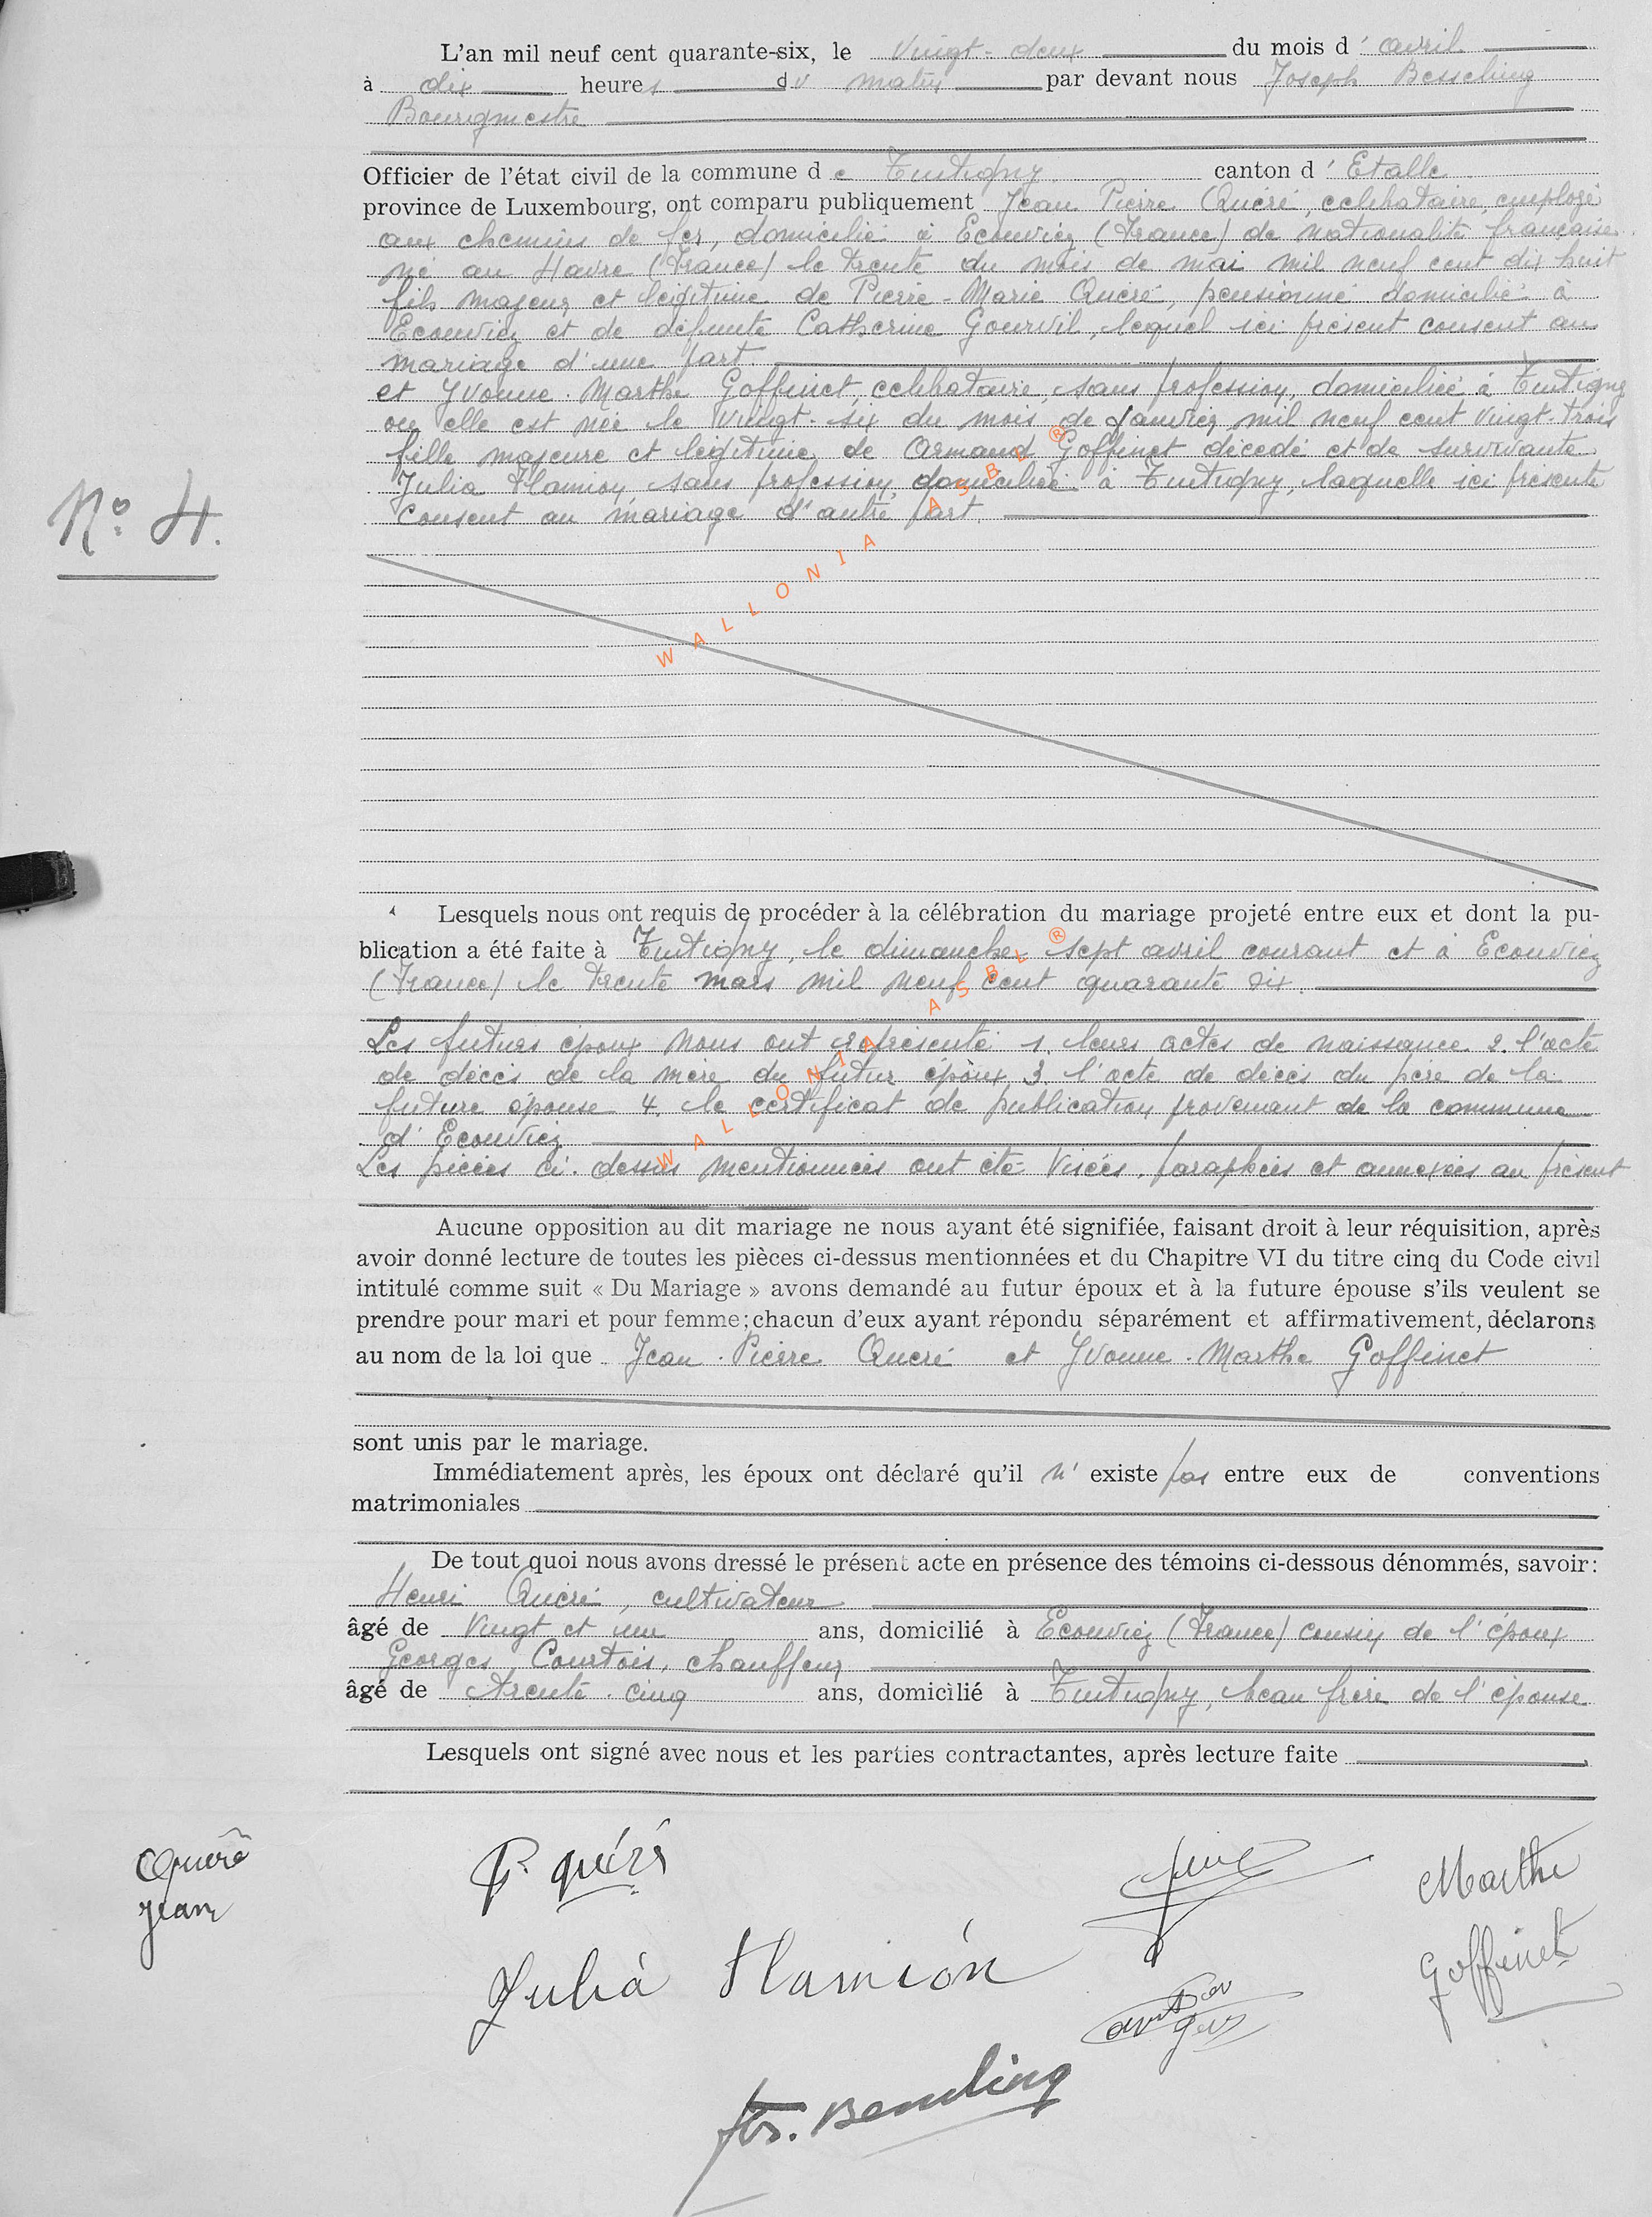 L'an mil neuf cent quarante-six, le vingt-deux du mois d' avril
à dix heures du matin par devant nous Joseph Besseling
Bourgmestre
Officier de l'état civil de la commune de Tintigny canton d' Etalle
province de Luxembourg, ont comparu publiquement Jean Pierre Quéré, célibataire, employé
aux chemins de fer, domicilié à Ecouviez (France) de nationalité française
né au Havre (France) le trente du mois de mai mil neuf cent dix huit
fils majeur et légitime de Pierre-Marie Quéré, pensionné domicilié à
Ecouviez et de défunte Catherine Gourvil, lequel ici présent consent au
mariage d'une part
et Yvonne-Marthe Goffinet, célibataire, sans profession, domiciliée à Tintigny
où elle est née le vingt-six du mois de janvier mil neuf cent vingt-trois
fille majeure et légitime de Armand Goffinet décédé et de survivante
Julia Hamion, sans profession, domiciliée à Tintigny, laquelle ici présente
consent au mariage d'autre part.
N° 4.
WALLONIA ASBL ®
Lesquels nous ont requis de procéder à la célébration du mariage projeté entre eux et dont la pu-
blication a été faite à Tintigny, le dimanche sept avril courant et à Ecouviez
(France) le trente mars mil neuf cent quarante six.
Les futurs époux nous ont représenté 1. leurs actes de naissance 2. l'acte
de décès de la mère du futur époux 3. l'acte de décès du père de la
future épouse 4. le certificat de publication provenant de la commune
d'Ecouviez
WALLONIA ASBL ®
Les pièces ci-dessus mentionnées ont été visées, paraphées et annexées au présent
Aucune opposition au dit mariage ne nous ayant été signifiée, faisant droit à leur réquisition, après
avoir donné lecture de toutes les pièces ci-dessus mentionnées et du Chapitre VI du titre cinq du Code civil
intitulé comme suit « Du Mariage » avons demandé au futur époux et à la future épouse s'ils veulent se
prendre pour mari et pour femme; chacun d'eux ayant répondu séparément et affirmativement, déclarons
au nom de la loi que Jean-Pierre Quéré et Yvonne-Marthe Goffinet
sont unis par le mariage.
Immédiatement après, les époux ont déclaré qu'il n' existe pas entre eux de conventions
matrimoniales
De tout quoi nous avons dressé le présent acte en présence des témoins ci-dessous dénommés, savoir:
Henri Quéré, cultivateur
âgé de vingt et un ans, domicilié à Ecouviez (France) cousin de l'époux
Georges Courtois, chauffeur
âgé de trente-cinq ans, domicilié à Tintigny, beau frère de l'épouse
Lesquels ont signé avec nous et les parties contractantes, après lecture faite
Quéré
Jean
P. quéré
Marthe
Goffinet
Julia Hamion
Jos. Besseling